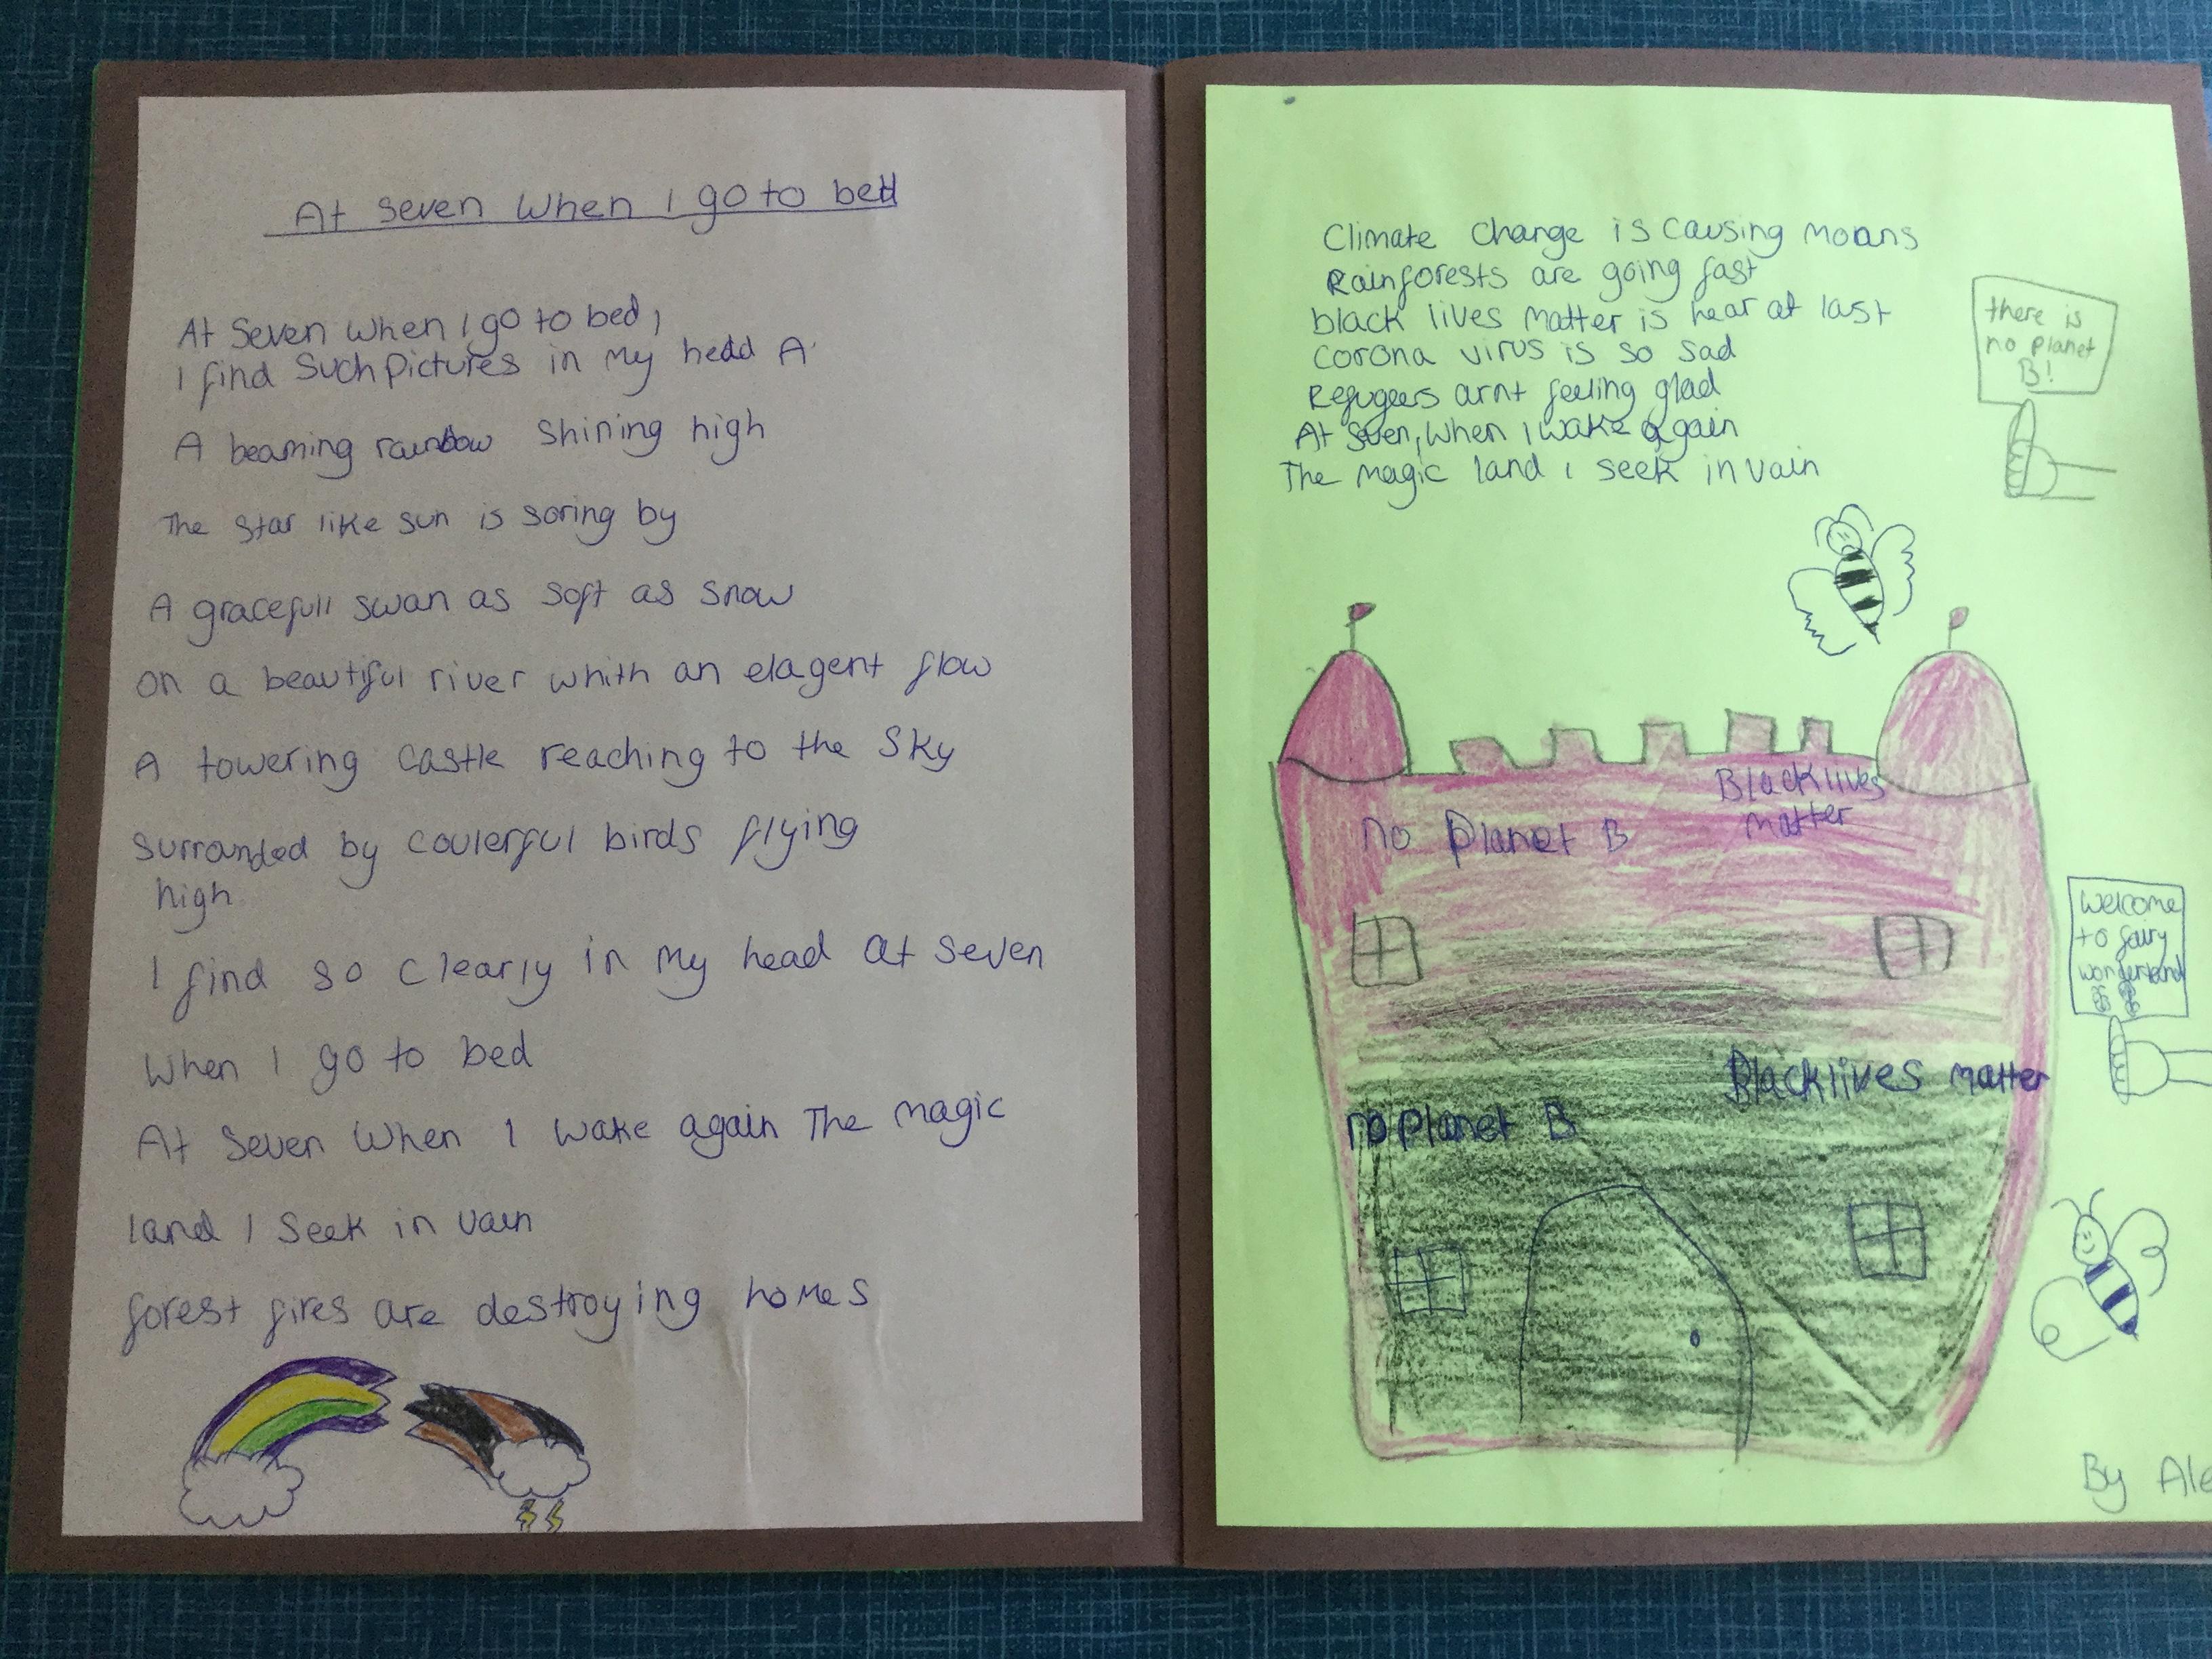 At Seven When I go to bed
At Seven When I go to bed,
I find Such Pictures in my hedd A
A beaming rainbow Shining high
The star like sun is soring by
A gracefull swan as soft as snow
on a beautiful river whith an elagent flow
A towering castle reaching to the sky
surrounded by coulerful birds flying
high
I find so clearly in my head at seven
When I go to bed
At Seven When I wake again The magic
land I Seek in vain
forest fires are destroying homes
Climate change is causing moans
Rainforests are going fast
black lives matter is hear at last
corona virus is so sad
Refugees arnt feeling glad
At Seven, When I wake again
The magic land I seek in vain
there is
no planet
B!
Black lives
matter
no Planet B
welcome
to fairy
wonderland
Black lives matter
no planet B
By Ale